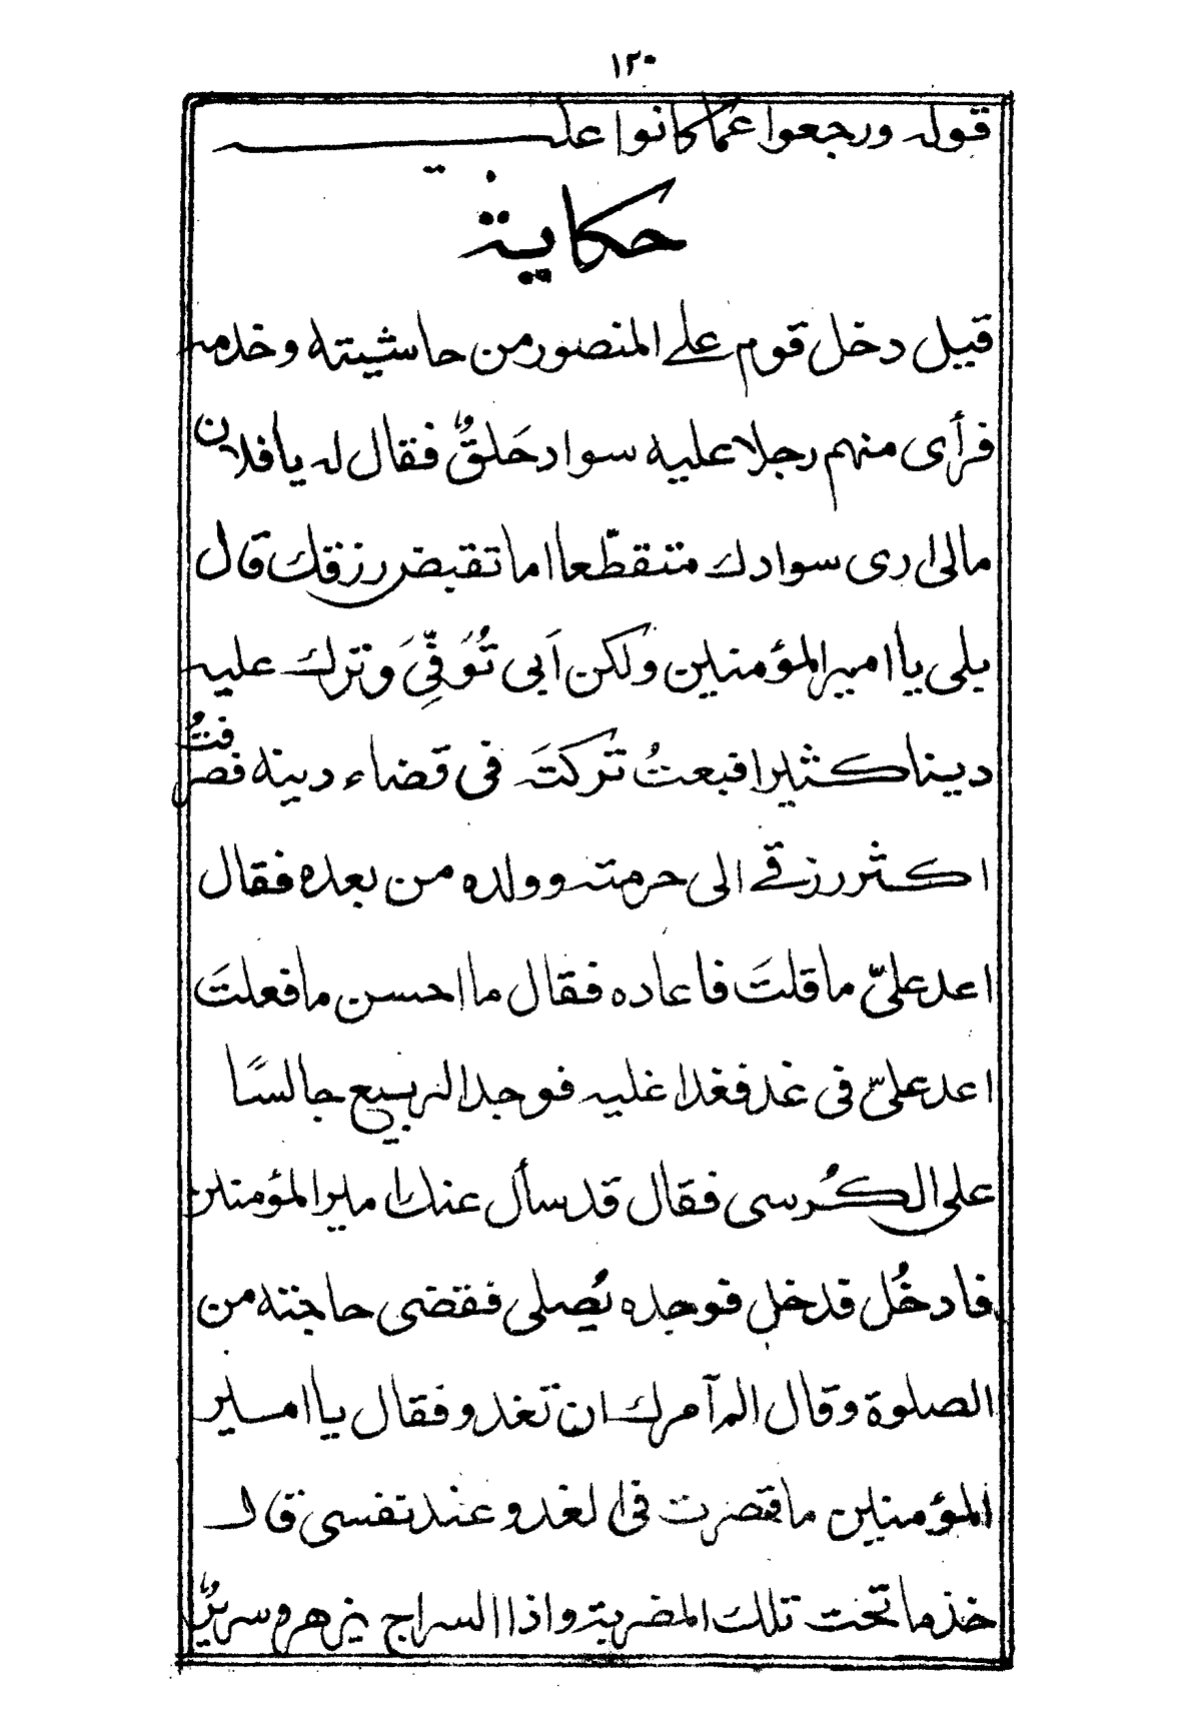 ١٢٠
قوله ورجعوا عما كانوا عليه
حكاية
قيل دخل قوم على المنصور من حاشيته وخدمه
فرأى منهم رجلا عليه سواد حَلقٌ فقال له يا فلان
مالى ارى سوادك متقطّعا اما تقبض رزقك قال
بلى يا امير المؤمنين ولكن اَبى تُوَفِّىَ وترك عليه
دينا كثيرا فبعتُ تركتَه فى قضاء دينه فصرفتُ
اكثر رزقى الى حرمته وولده من بعده فقال
اعد علىّ ما قلتَ فاعاده فقال ما احسن ما فعلتَ
اعد علىّ فى غد فغدا غليه فوجد الربيع جالسًا
على الكُرسى فقال قد سأل عنك امير المؤمنين
فادخُل قدخل فوجده يُصلى فقضى حاجته من
الصلوة وقال الم آمرك ان تغدو فقال يا امير
المؤمنين ما قصرت فى الغدو عند نفسى قال
خذ ما تحت تلك المضربة واذا السراج يزهر وسريرٌ